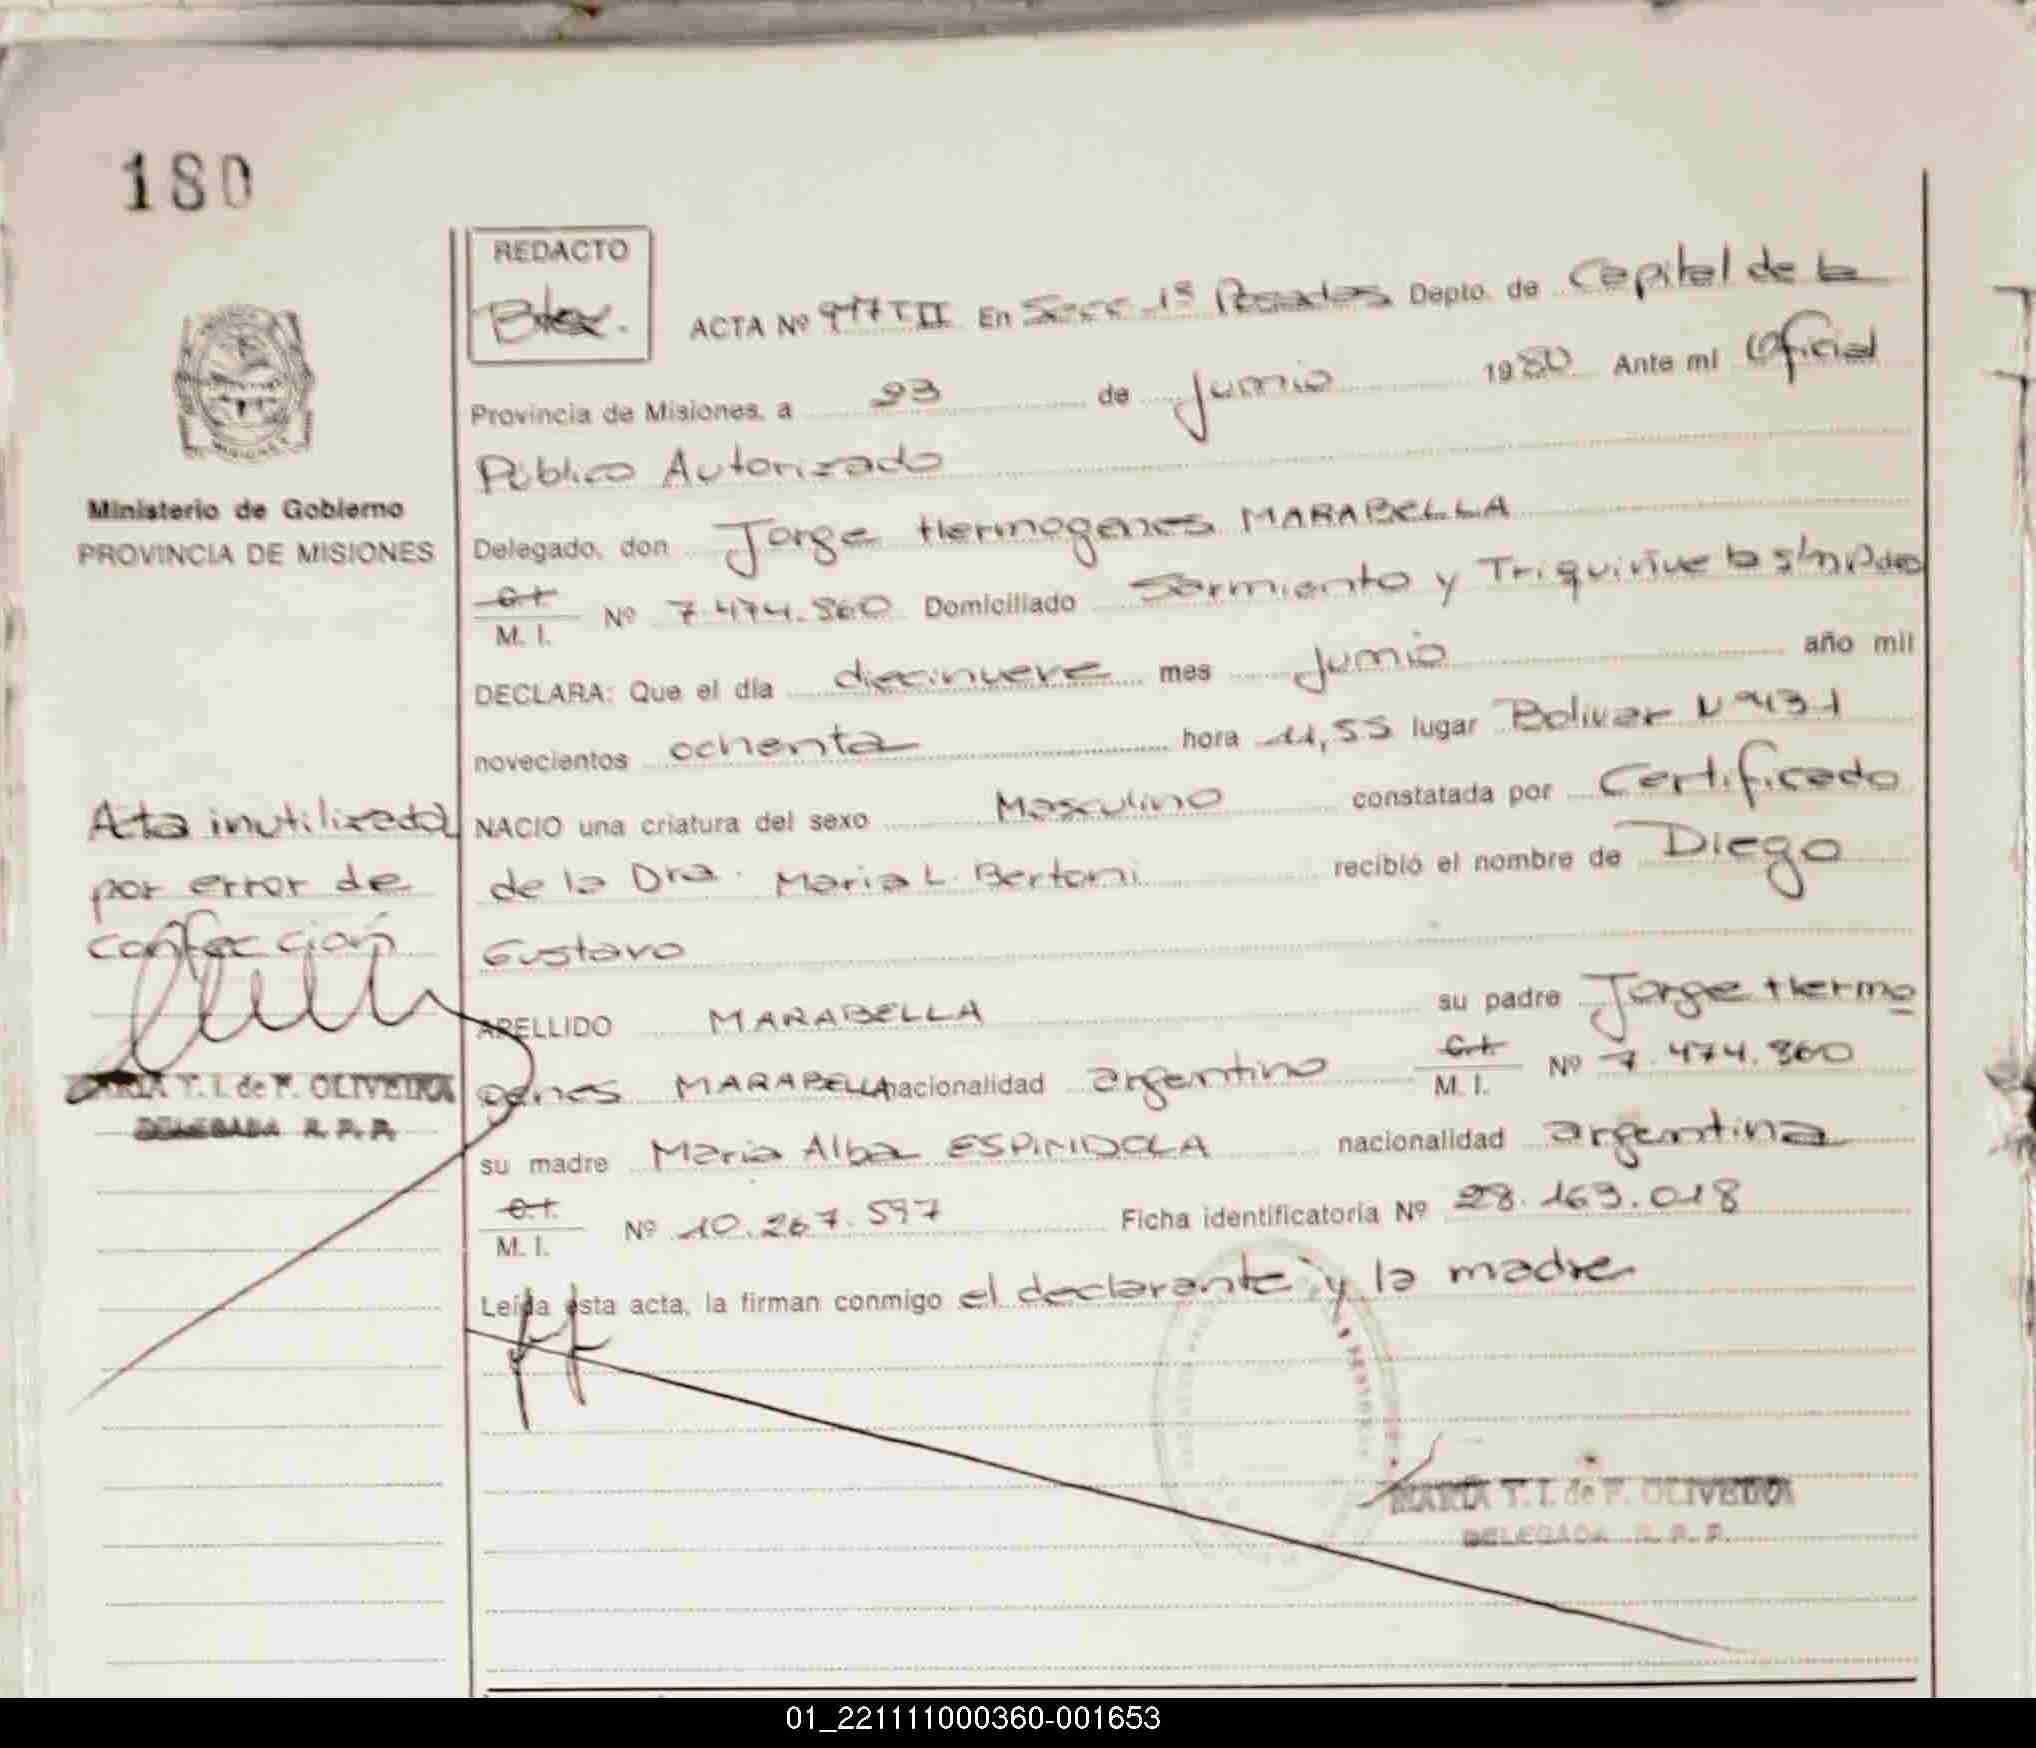 180
REDACTO
ACTA Nº 977 T II En Secc 1ª Posadas Depto. de Capital de la
Provincia de Misiones, a 23 de Junio 1980 Ante mi Oficial
Público Autorizado
Ministerio de Gobierno
PROVINCIA DE MISIONES
Delegado, don Jorge Hermogenes MARABELLA
C.I. M. I. Nº 7.474.860 Domiciliado Sarmiento y s/n Pdas
DECLARA: Que el día diecinueve mes Junio año mil
novecientos ochenta hora 11,55 lugar Bolivar
NACIO una criatura del sexo Masculino constatada por Certificado
de la Dra. Maria L. Bertoni recibió el nombre de Diego
Gustavo
APELLIDO MARABELLA su padre Jorge Hermo
genes MARABELLA nacionalidad argentino C.I. M. I. Nº 7.474.860
su madre Maria Alba ESPINDOLA nacionalidad argentina
C.I. M. I. Nº 10.267.597 Ficha identificatoria Nº 28.163.018
Leída esta acta, la firman conmigo el declarante y la madre
Acta inutilizada
por error de
confección
MARIA T. I. de F. OLIVEIRA
DELEGADA R. P. P.
MARIA T. I. de F. OLIVEIRA
DELEGADA R. P. P.
01_221111000360-001653